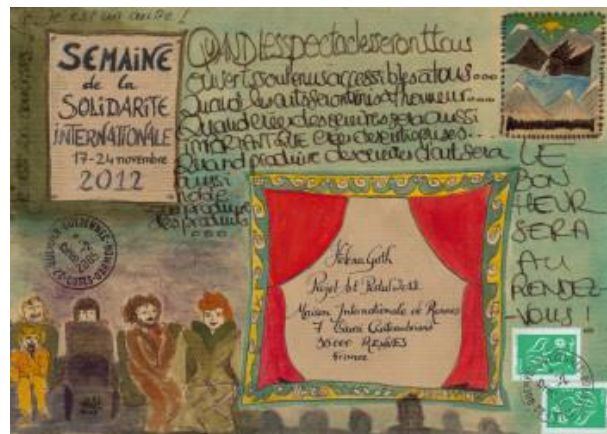 Je est un autre !
SEMAINE
de la
SOLIDARITE
INTERNATIONALE
17-24 novembre
2012
QUAND LES spectacles seront tous
ouverts soutenus accessibles à tous...
Quand les arts seront mis à l'honneur...
Quand créer des oeuvres sera aussi
IMPORTANT QUE créer des entreprises...
Quand produire des oeuvres d'art sera
aussi
noble
que produire
des produits
!...
LE
BON
HEUR
SERA
AU
RENDEZ-
VOUS !
Projet Art Postal 2012
Maison Internationale de Rennes
7 Quai Chateaubriand
35000 RENNES
France
2005